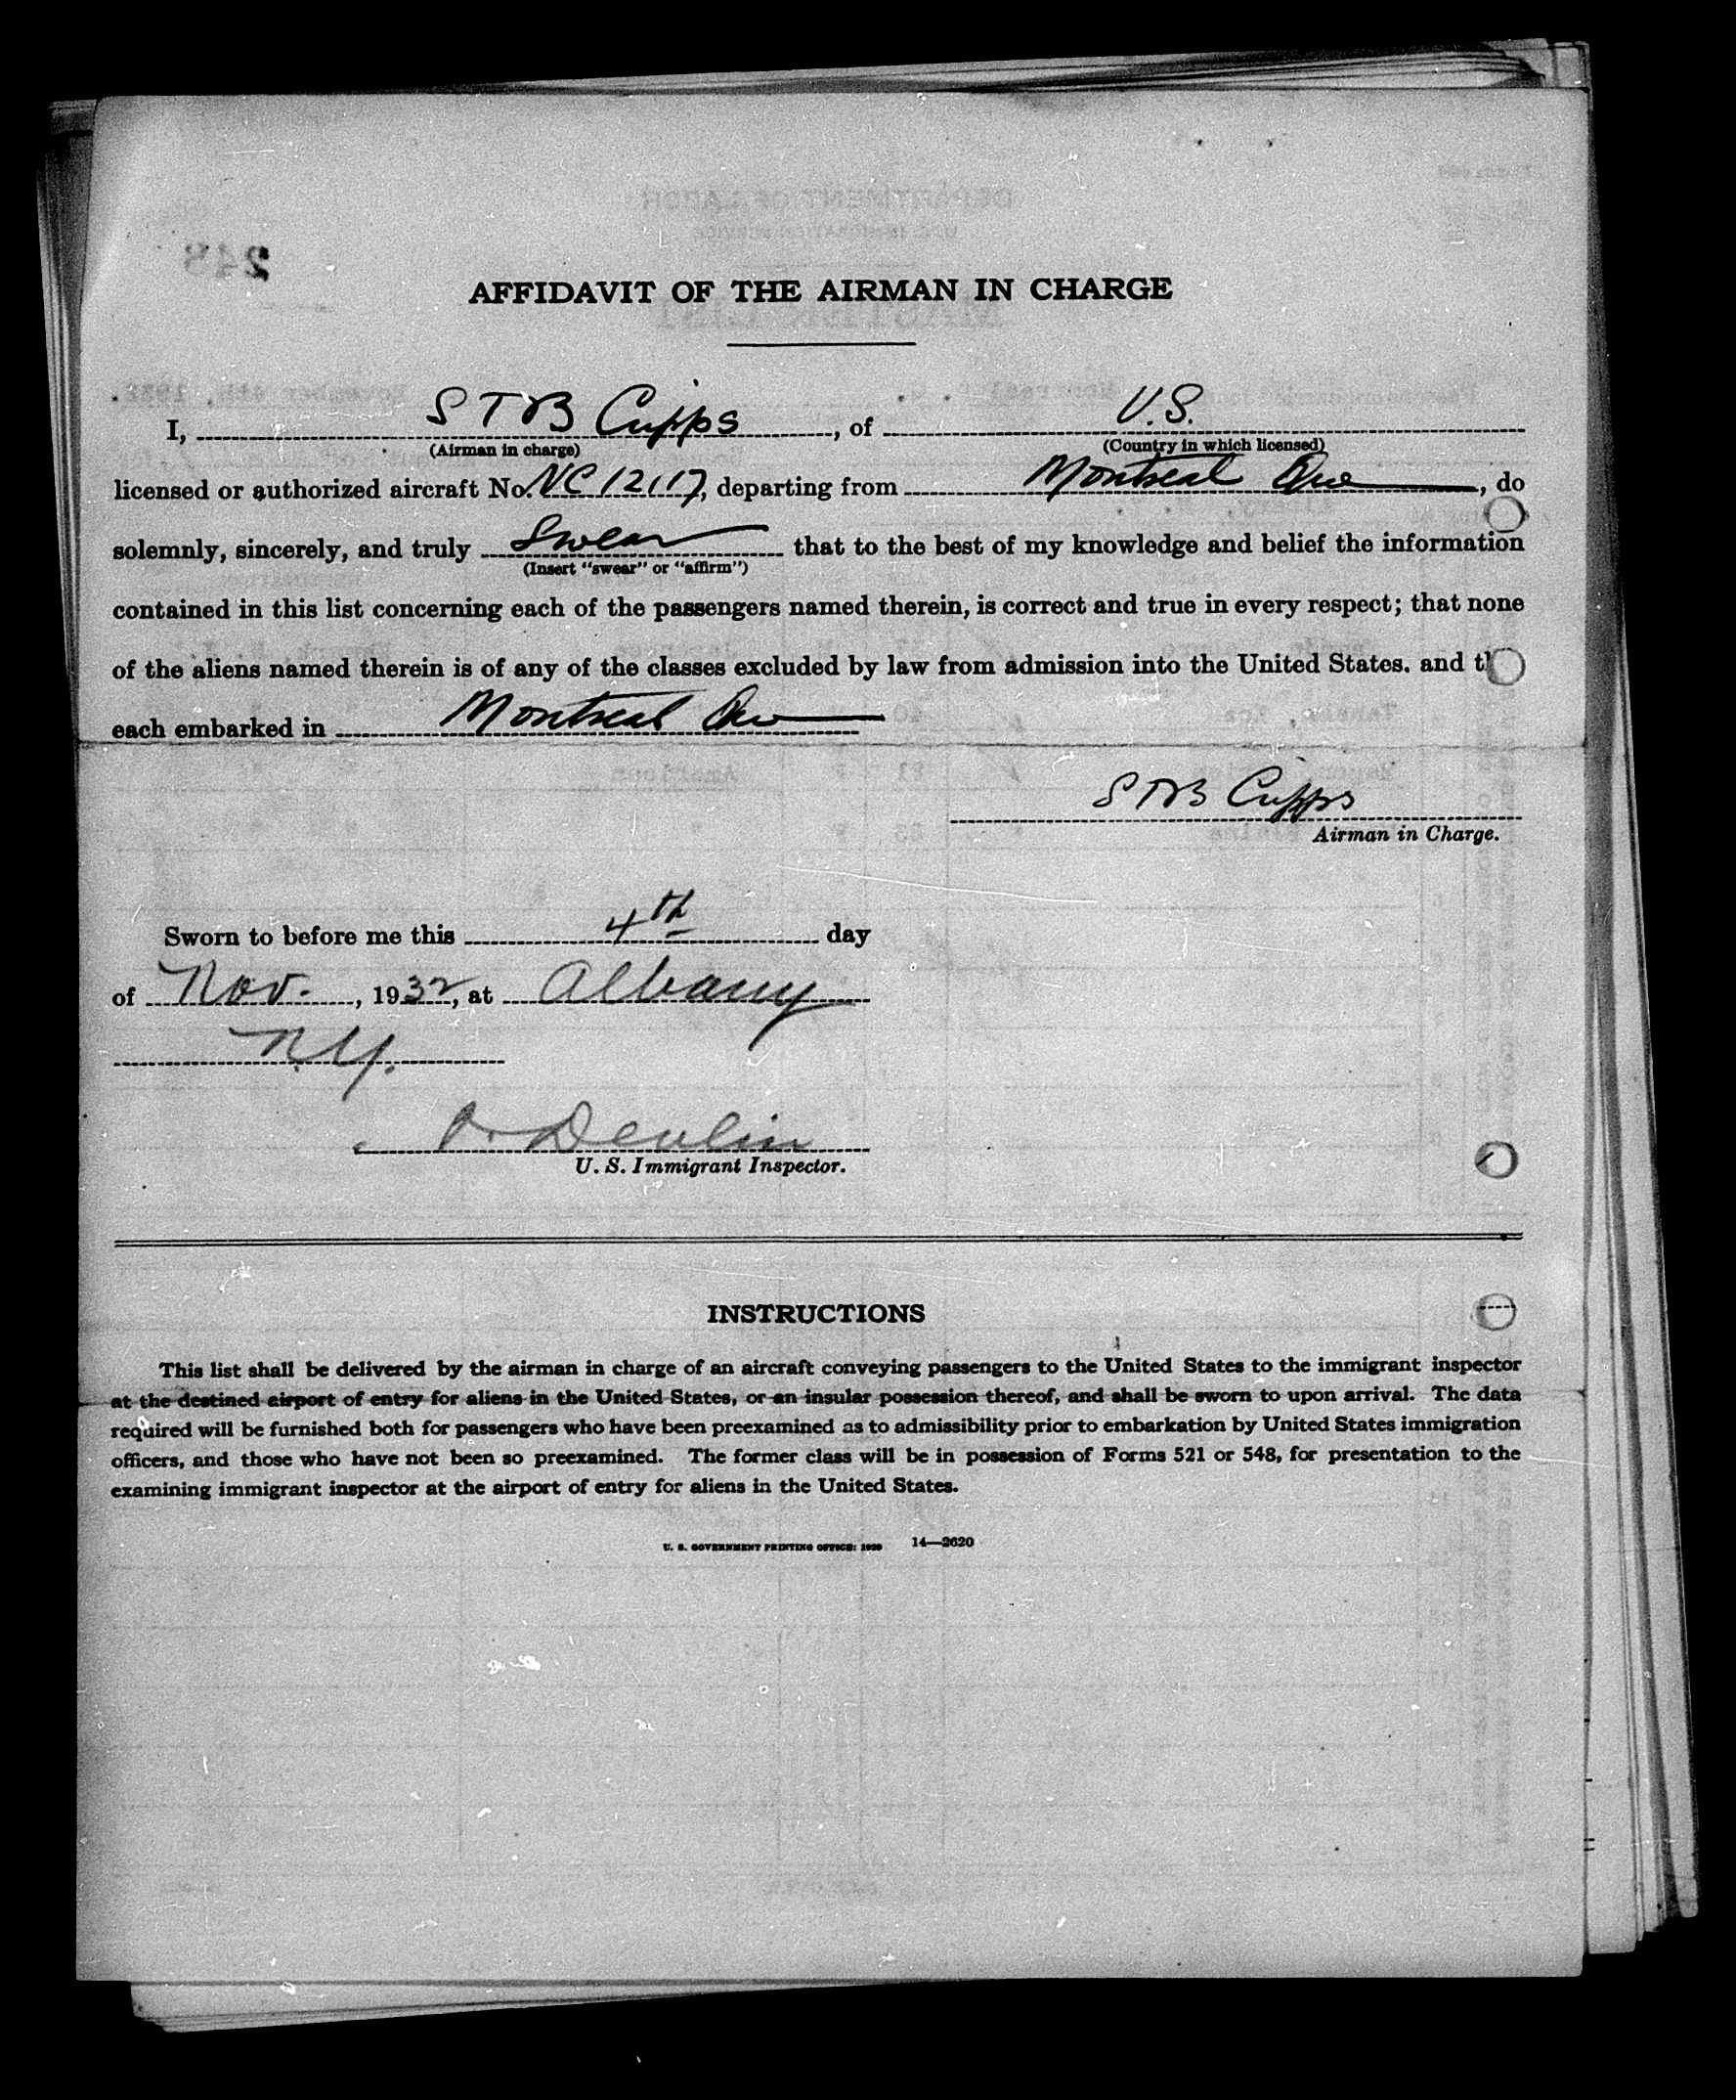 AFFIDAVIT OF THE AIRMAN IN CHARGE
I, S T B Cupps, of U.S.
(Airman in charge) (Country in which licensed)
licensed or authorized aircraft No. NC 12117, departing from Montreal Que, do
solemnly, sincerely, and truly Swear that to the best of my knowledge and belief the information
(Insert "swear" or "affirm")
contained in this list concerning each of the passengers named therein, is correct and true in every respect; that none
of the aliens named therein is of any of the classes excluded by law from admission into the United States. and
each embarked in Montreal Que
S T B Cupps
Airman in Charge.
Sworn to before me this 4th day
of Nov., 1932, at Albany
N.Y.
Devlin
U. S. Immigrant Inspector.
INSTRUCTIONS
This list shall be delivered by the airman in charge of an aircraft conveying passengers to the United States to the immigrant inspector
at the destined airport of entry for aliens in the United States, or an insular possession thereof, and shall be sworn to upon arrival. The data
required will be furnished both for passengers who have been preexamined as to admissibility prior to embarkation by United States immigration
officers, and those who have not been so preexamined. The former class will be in possession of Forms 521 or 548, for presentation to the
examining immigrant inspector at the airport of entry for aliens in the United States.
U. S. GOVERNMENT PRINTING OFFICE: 14—2620